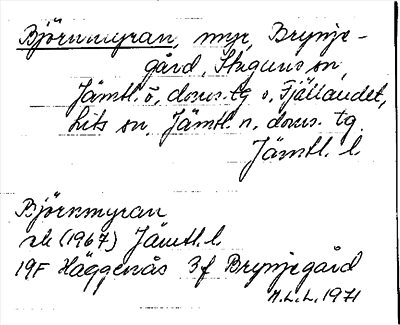 Björnmyran, myr, Brynje-
gård, Stuguns sn,
Jämtl. ö. doms. tg o. Fjällandet,
Lits sn, Jämtl. n. doms. tg
Jämtl. l.
Björnmyran
rik (1967) Jämtl. l.
19F Häggenås 3f Brynjegård
H.L.L. 1971